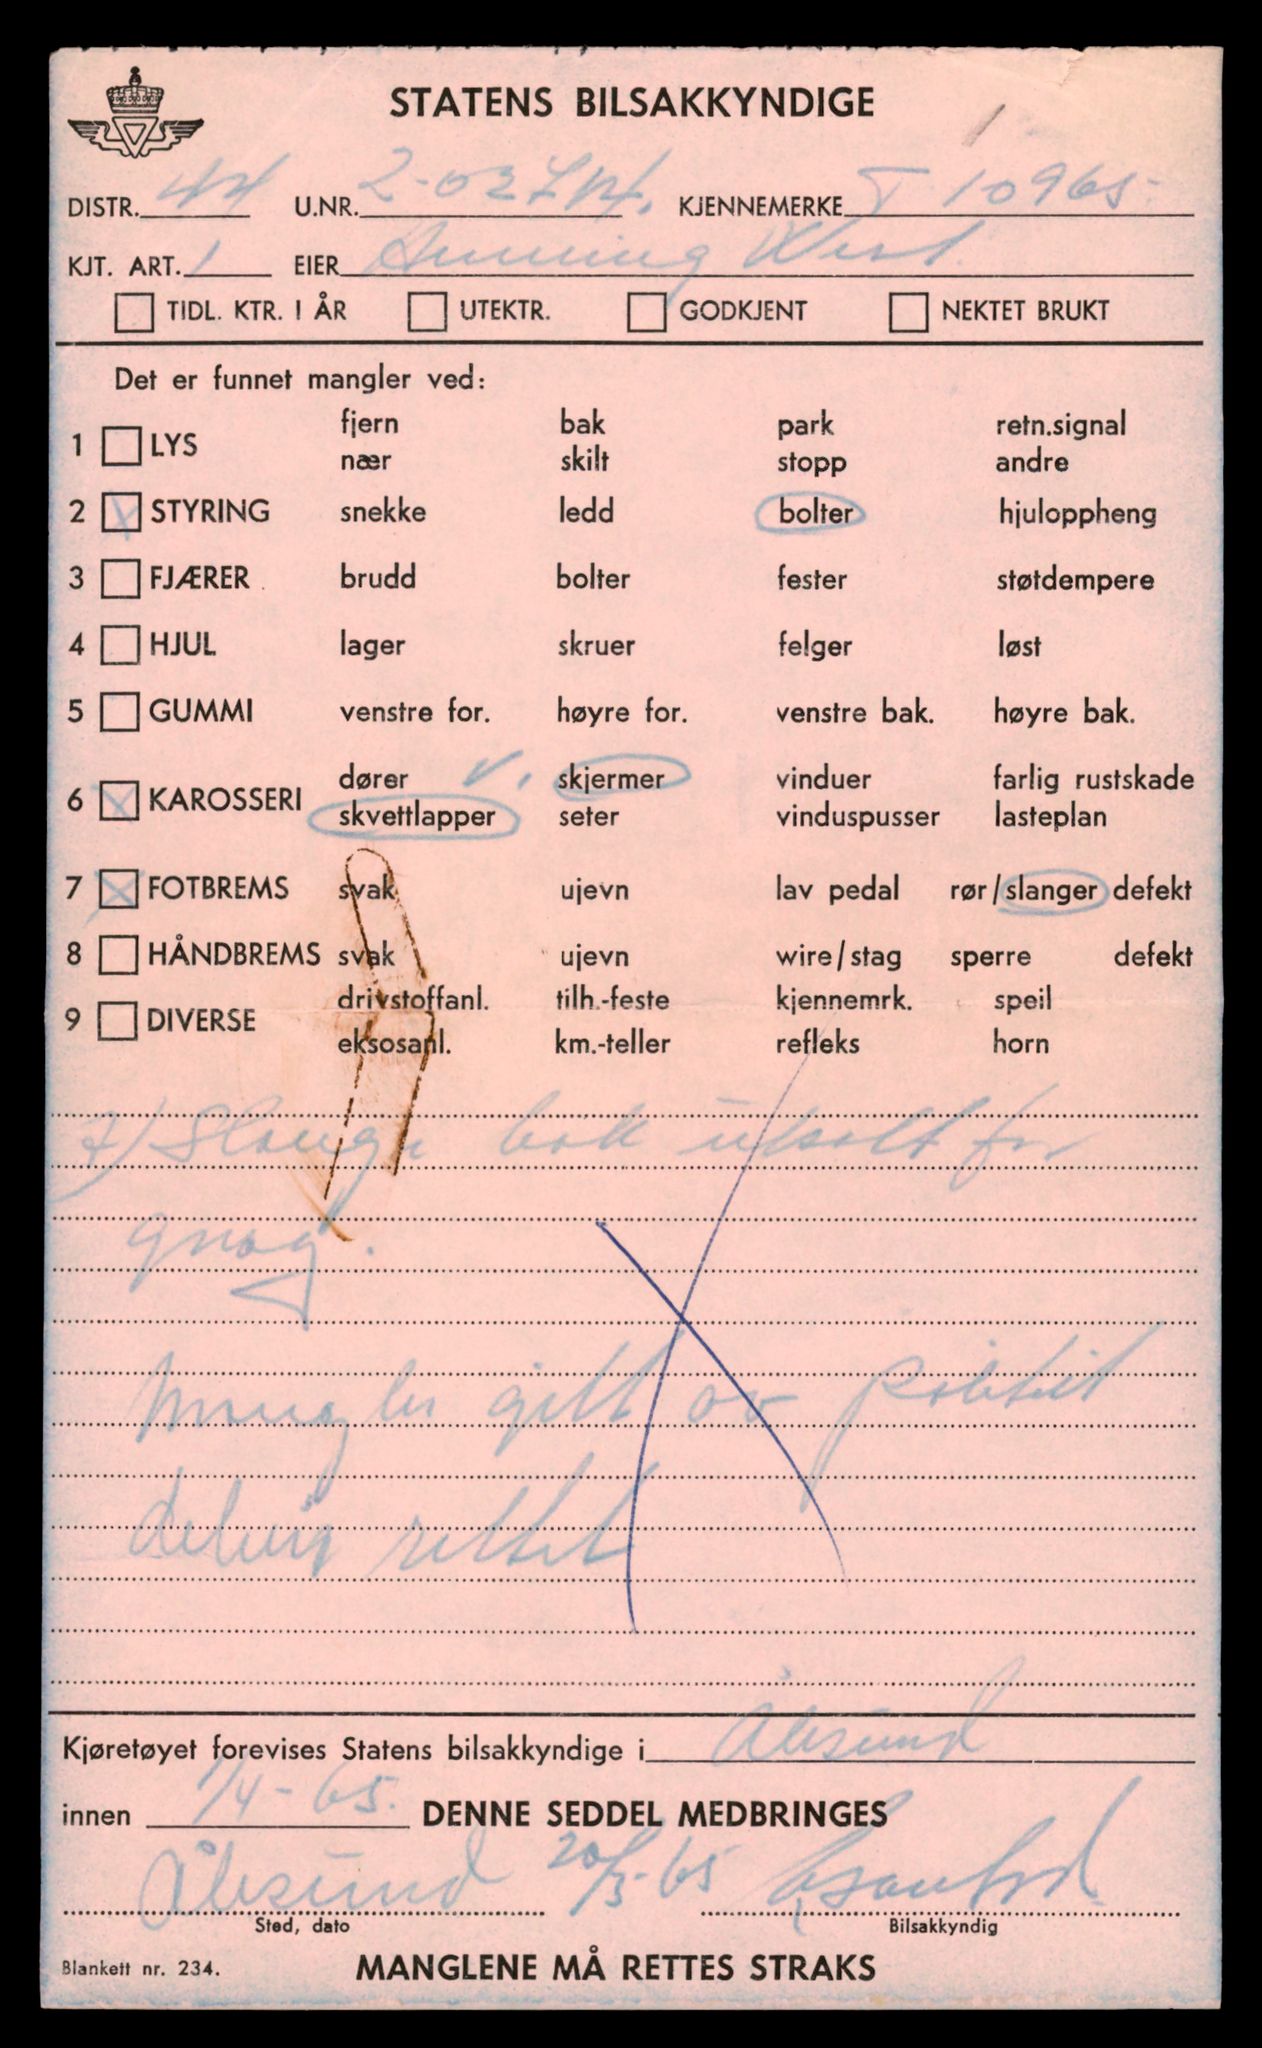 STATENS BILSAKKYNDIGE
DISTR. 44 U.NR. KJENNEMERKE T 10965
KJT. ART. 1 EIER
TIDL. KTR. I ÅR UTEKTR. GODKJENT NEKTET BRUKT
Det er funnet mangler ved:
1 LYS fjern bak park retn.signal
nær skilt stopp andre
2 STYRING snekke ledd bolter hjuloppheng
3 FJÆRER brudd bolter fester støtdempere
4 HJUL lager skruer felger løst
5 GUMMI venstre for. høyre for. venstre bak. høyre bak.
6 KAROSSERI dører v. skjermer vinduer farlig rustskade
skvettlapper seter vinduspusser lasteplan
7 FOTBREMS svak ujevn lav pedal rør/slanger defekt
8 HÅNDBREMS svak ujevn wire/stag sperre defekt
9 DIVERSE drivstoffanl. tilh.-feste kjennemrk. speil
eksosanl. km.-teller refleks horn
7) Slange bak utsatt for
gnag.
Mangler gitt av politit
delvis rettet
Kjøretøyet forevises Statens bilsakkyndige i Ålesund
innen 1/4-65. DENNE SEDDEL MEDBRINGES
Ålesund 20/3-65
Sted, dato Bilsakkyndig
Blankett nr. 234. MANGLENE MÅ RETTES STRAKS